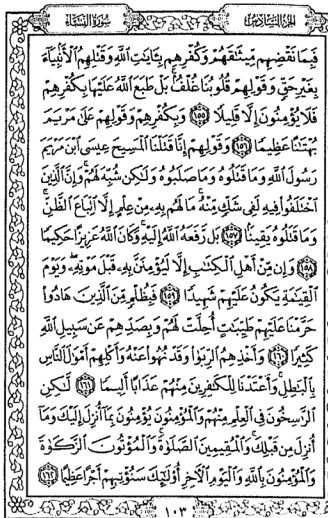 الجزء السادس سورة النساء
فَبِمَا نَقْضِهِم مِّيثَاقَهُمْ وَكُفْرِهِم بِـَٔايَـٰتِ ٱللَّهِ وَقَتْلِهِمُ ٱلْأَنۢبِيَآءَ
بِغَيْرِ حَقٍّ وَقَوْلِهِمْ قُلُوبُنَا غُلْفٌۢ ۚ بَلْ طَبَعَ ٱللَّهُ عَلَيْهَا بِكُفْرِهِمْ
فَلَا يُؤْمِنُونَ إِلَّا قَلِيلًا ١٥٥ وَبِكُفْرِهِمْ وَقَوْلِهِمْ عَلَىٰ مَرْيَمَ
بُهْتَـٰنًا عَظِيمًا ١٥٦ وَقَوْلِهِمْ إِنَّا قَتَلْنَا ٱلْمَسِيحَ عِيسَى ٱبْنَ مَرْيَمَ
رَسُولَ ٱللَّهِ وَمَا قَتَلُوهُ وَمَا صَلَبُوهُ وَلَـٰكِن شُبِّهَ لَهُمْ ۚ وَإِنَّ ٱلَّذِينَ
ٱخْتَلَفُوا۟ فِيهِ لَفِى شَكٍّ مِّنْهُ ۚ مَا لَهُم بِهِۦ مِنْ عِلْمٍ إِلَّا ٱتِّبَاعَ ٱلظَّنِّ ۚ
وَمَا قَتَلُوهُ يَقِينًۢا ١٥٧ بَل رَّفَعَهُ ٱللَّهُ إِلَيْهِ ۚ وَكَانَ ٱللَّهُ عَزِيزًا حَكِيمًا
١٥٨ وَإِن مِّنْ أَهْلِ ٱلْكِتَـٰبِ إِلَّا لَيُؤْمِنَنَّ بِهِۦ قَبْلَ مَوْتِهِۦ ۖ وَيَوْمَ
ٱلْقِيَـٰمَةِ يَكُونُ عَلَيْهِمْ شَهِيدًا ١٥٩ فَبِظُلْمٍ مِّنَ ٱلَّذِينَ هَادُوا۟
حَرَّمْنَا عَلَيْهِمْ طَيِّبَـٰتٍ أُحِلَّتْ لَهُمْ وَبِصَدِّهِمْ عَن سَبِيلِ ٱللَّهِ
كَثِيرًا ١٦٠ وَأَخْذِهِمُ ٱلرِّبَوٰا۟ وَقَدْ نُهُوا۟ عَنْهُ وَأَكْلِهِمْ أَمْوَٰلَ ٱلنَّاسِ
بِٱلْبَـٰطِلِ ۚ وَأَعْتَدْنَا لِلْكَـٰفِرِينَ مِنْهُمْ عَذَابًا أَلِيمًا ١٦١ لَّـٰكِنِ
ٱلرَّٰسِخُونَ فِى ٱلْعِلْمِ مِنْهُمْ وَٱلْمُؤْمِنُونَ يُؤْمِنُونَ بِمَآ أُنزِلَ إِلَيْكَ وَمَآ
أُنزِلَ مِن قَبْلِكَ ۚ وَٱلْمُقِيمِينَ ٱلصَّلَوٰةَ ۚ وَٱلْمُؤْتُونَ ٱلزَّكَوٰةَ
وَٱلْمُؤْمِنُونَ بِٱللَّهِ وَٱلْيَوْمِ ٱلْـَٔاخِرِ أُو۟لَـٰٓئِكَ سَنُؤْتِيهِمْ أَجْرًا عَظِيمًا ١٦٢
١٠٣